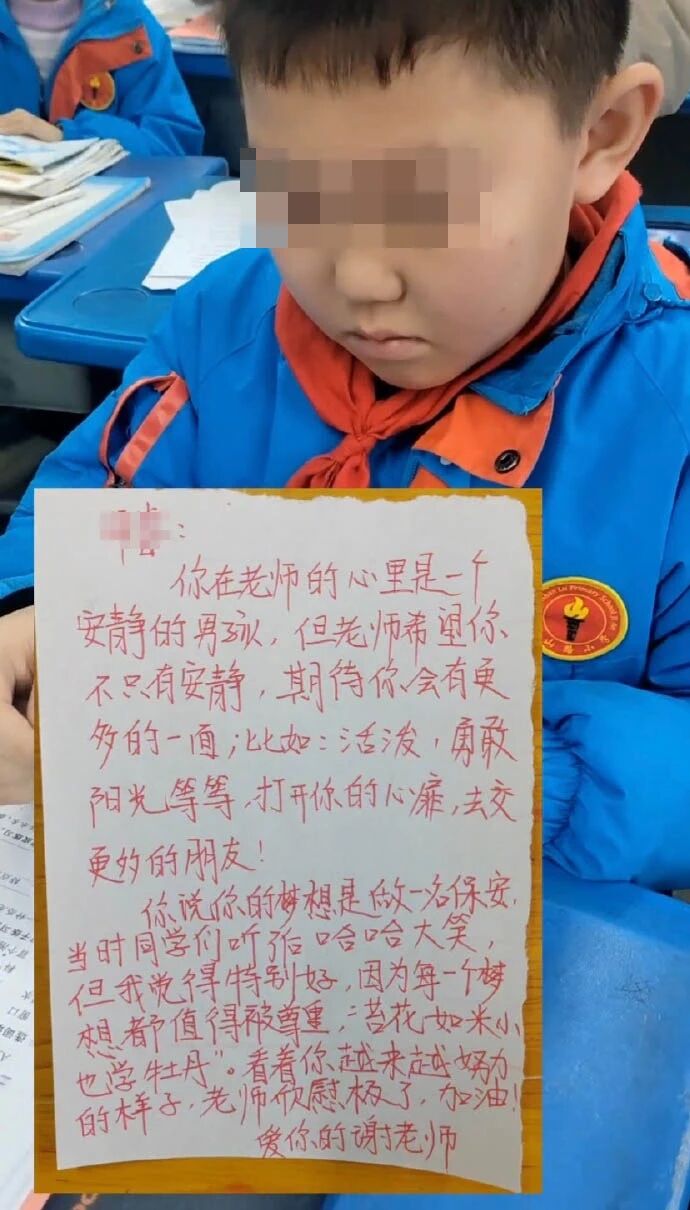 你在老师的心里是一个
安静的男孩,但老师希望你
不只有安静,期待你会有更
多的一面;比如:活泼,勇敢
阳光等等,打开你的心扉,去交
更多的朋友!
你说你的梦想是做一名保安,
当时同学们听后哈哈大笑,
但我觉得特别好,因为每一个梦
想都值得被尊重,“苔花如米小
也学牡丹”。看着你越来越努力
的样子,老师欣慰极了,加油!
爱你的谢老师
Primary School
山路小学